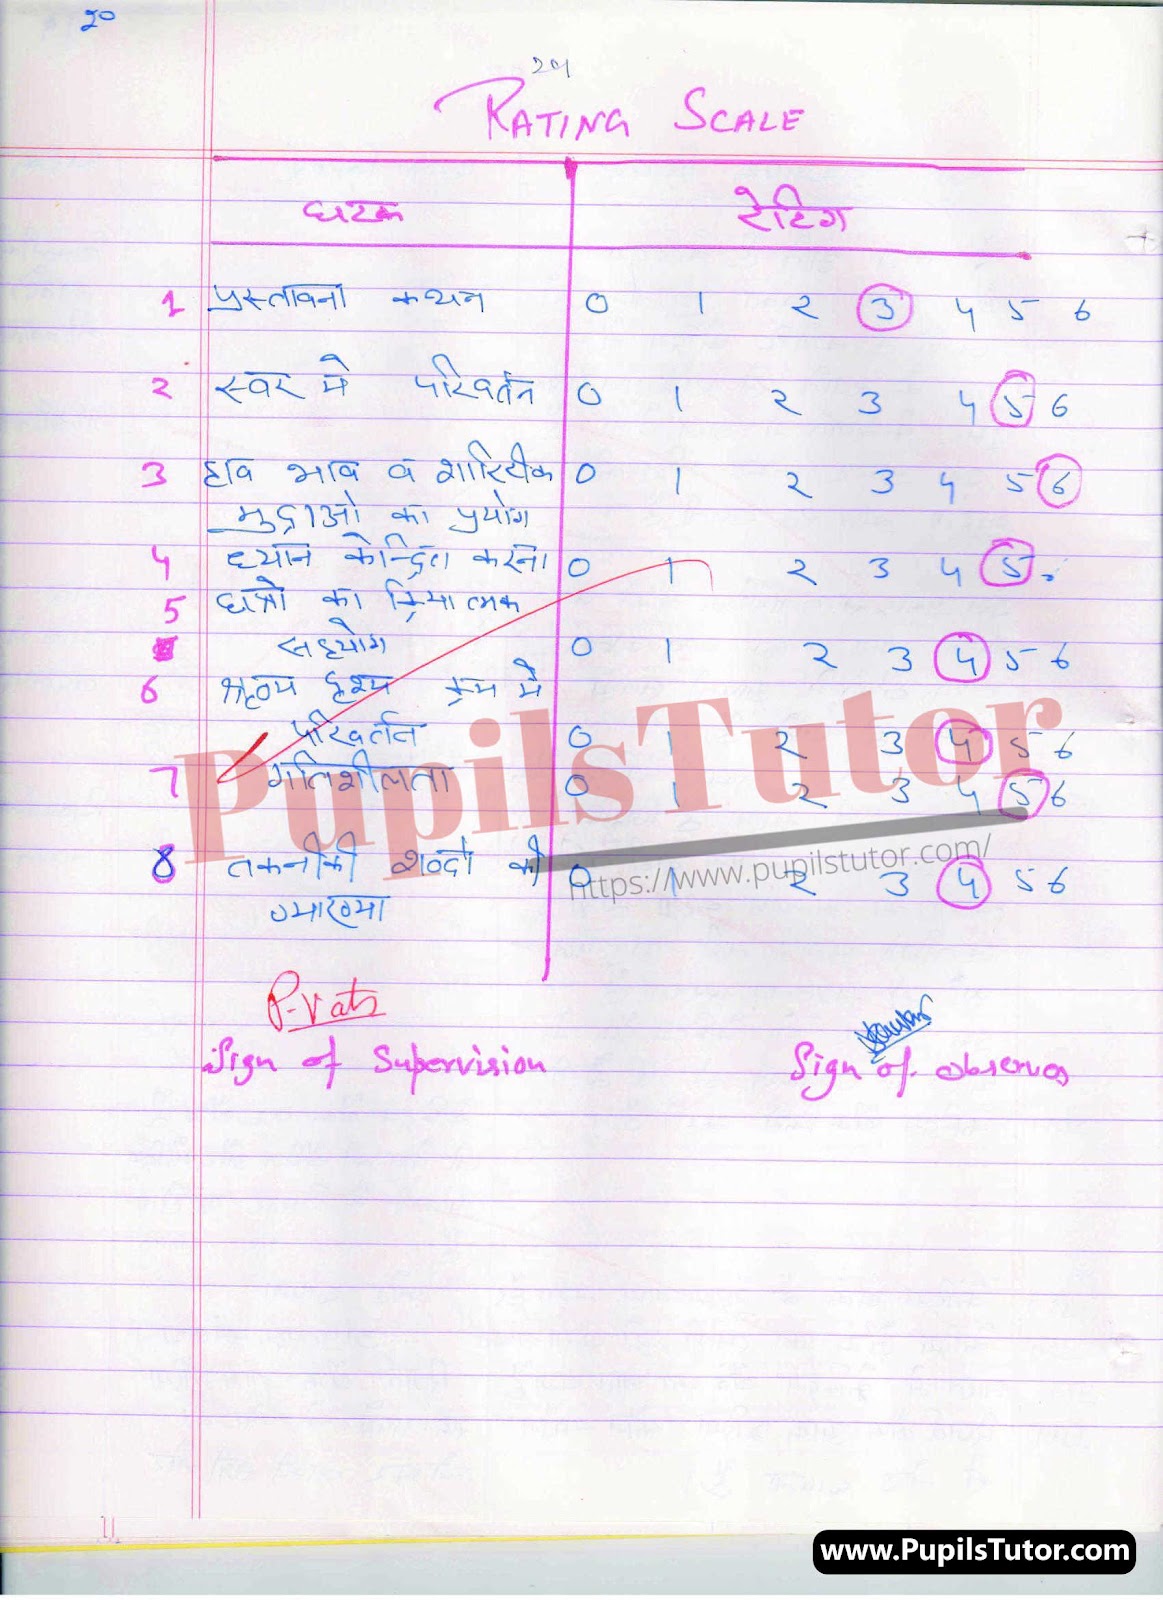 20
RATING SCALE
घटक रेटिंग
1 प्रस्तावना कथन 0 1 2 3 4 5 6
2 स्वर मे परिवर्तन 0 1 2 3 4 5 6
3 हाव भाव व शारिरीक 0 1 2 3 4 5 6
मुद्राओ का प्रयोग
4 ध्यान केन्द्रित करना 0 1 2 3 4 5
5 छात्रो का क्रियात्मक
सहयोग 0 1 2 3 4 5 6
6 श्रव्य दृश्य क्रम मे
परिवर्तन 0 1 2 3 4 5 6
7 गतिशीलता 0 1 2 3 4 5 6
8 तकनीकी शब्दो की 0 1 2 3 4 5 6
व्याख्या
PupilsTutor
https://www.pupilstutor.com/
P-Vats
Sign of Supervision Sign of observes
www.PupilsTutor.com